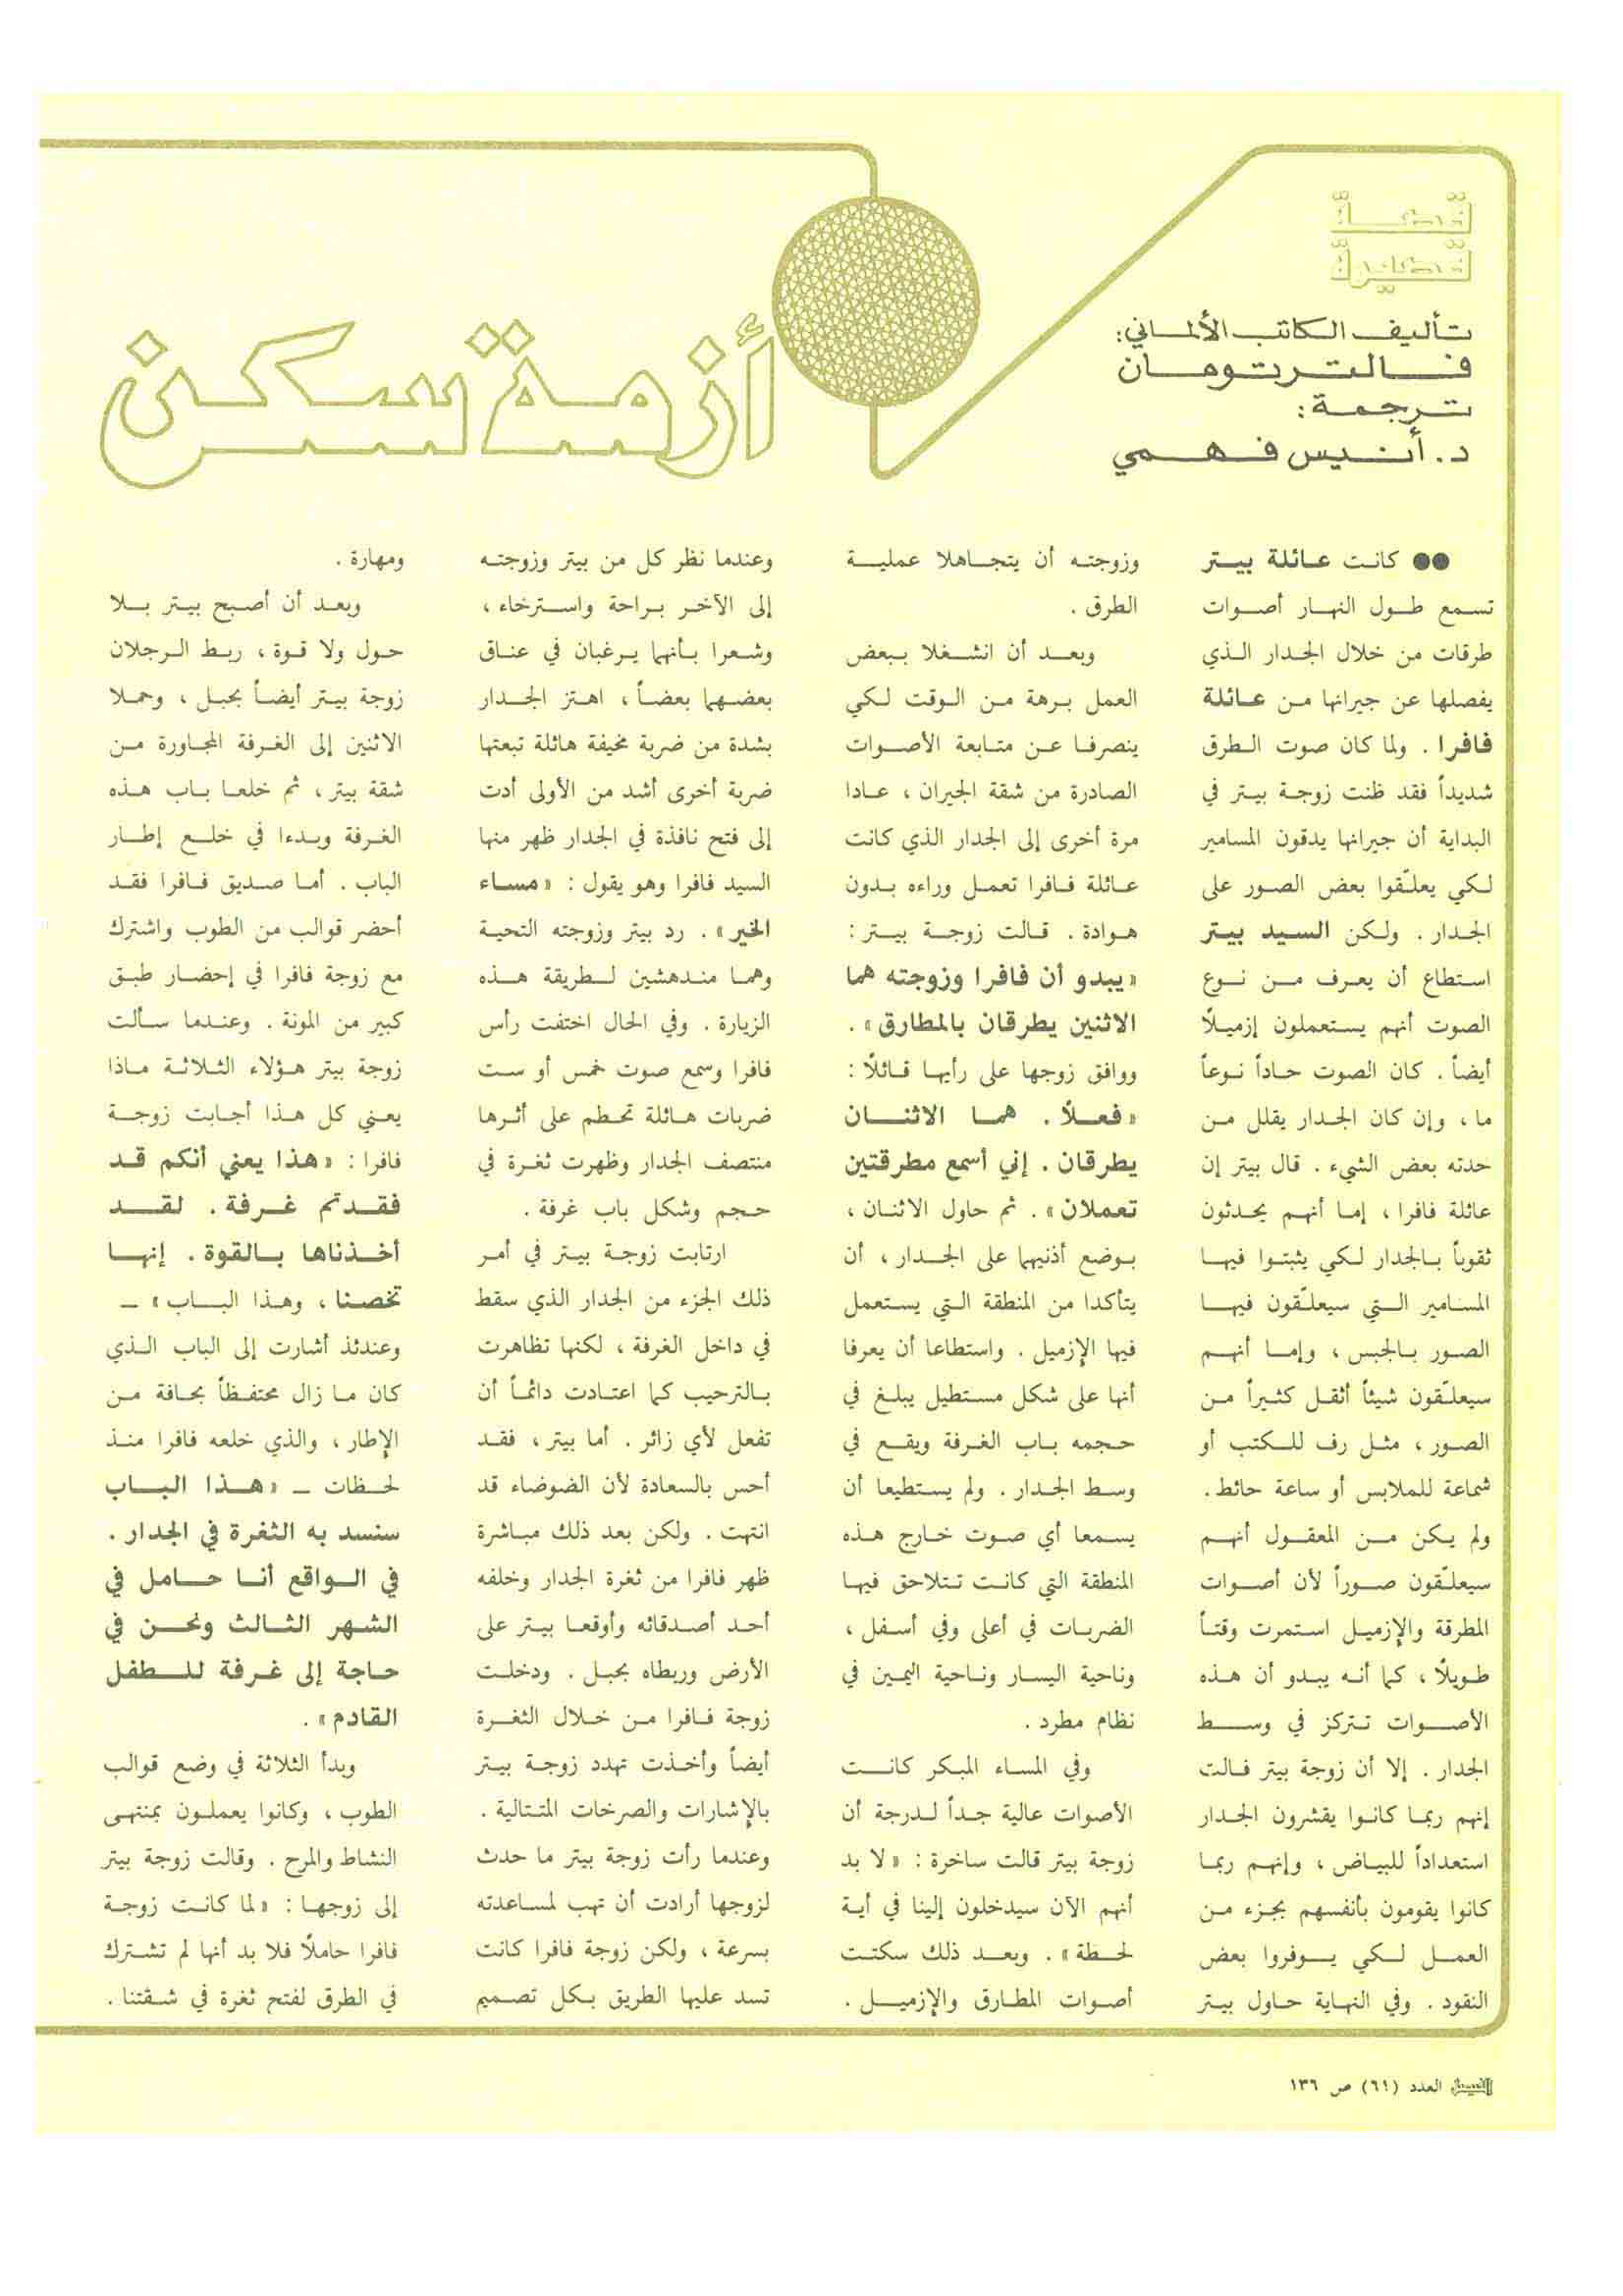 قصة
قصيرة
تأليف الكاتب الألماني:
فالترتومان
ترجمة:
د. أنيس فهمي
أزمة سكن
●● كانت عائلة بيتر
تسمع طول النهار أصوات
طرقات من خلال الجدار الذي
يفصلها عن جيرانها من عائلة
فافرا . ولما كان صوت الطرق
شديداً فقد ظنت زوجة بيتر في
البداية أن جيرانها يدقون المسامير
لكي يعلّقوا بعض الصور على
الجدار . ولكن السيد بيتر
استطاع أن يعرف من نوع
الصوت أنهم يستعملون إزميلًا
أيضاً . كان الصوت حاداً نوعاً
ما ، وإن كان الجدار يقلل من
حدته بعض الشيء . قال بيتر إن
عائلة فافرا ، إما أنهم يحدثون
ثقوباً بالجدار لكي يثبتوا فيها
المسامير التي سيعلّقون فيها
الصور بالجبس ، وإما أنهم
سيعلّقون شيئاً أثقل كثيراً من
الصور ، مثل رف للكتب أو
شماعة للملابس أو ساعة حائط .
ولم يكن من المعقول أنهم
سيعلّقون صوراً لأن أصوات
المطرقة والإزميل استمرت وقتاً
طويلًا ، كما أنه يبدو أن هذه
الأصوات تتركز في وسط
الجدار . إلا أن زوجة بيتر قالت
إنهم ربما كانوا يقشرون الجدار
استعداداً للبياض ، وإنهم ربما
كانوا يقومون بأنفسهم بجزء من
العمل لكي يوفروا بعض
النقود . وفي النهاية حاول بيتر
وزوجته أن يتجاهلا عملية
الطرق .
وبعد أن انشغلا ببعض
العمل برهة من الوقت لكي
ينصرفا عن متابعة الأصوات
الصادرة من شقة الجيران ، عادا
مرة أخرى إلى الجدار الذي كانت
عائلة فافرا تعمل وراءه بدون
هوادة . قالت زوجة بيتر :
« يبدو أن فافرا وزوجته هما
الاثنين يطرقان بالمطارق » .
ووافق زوجها على رأيها قائلًا :
« فعلًا . هما الاثنان
يطرقان . إني أسمع مطرقتين
تعملان » . ثم حاول الاثنان ،
بوضع أذنيهما على الجدار ، أن
يتأكدا من المنطقة التي يستعمل
فيها الإزميل . واستطاعا أن يعرفا
أنها على شكل مستطيل يبلغ في
حجمه باب الغرفة ويقع في
وسط الجدار . ولم يستطيعا أن
يسمعا أي صوت خارج هذه
المنطقة التي كانت تتلاحق فيها
الضربات في أعلى وفي أسفل ،
وناحية اليسار وناحية اليمين في
نظام مطرد .
وفي المساء المبكر كانت
الأصوات عالية جداً لدرجة أن
زوجة بيتر قالت ساخرة : « لا بد
أنهم الآن سيدخلون إلينا في أية
لحظة » . وبعد ذلك سكتت
أصوات المطارق والإزميل .
وعندما نظر كل من بيتر وزوجته
إلى الآخر براحة واسترخاء ،
وشعرا بأنهما يرغبان في عناق
بعضهما بعضاً ، اهتز الجدار
بشدة من ضربة مخيفة هائلة تبعتها
ضربة أخرى أشد من الأولى أدت
إلى فتح نافذة في الجدار ظهر منها
السيد فافرا وهو يقول : « مساء
الخير » . رد بيتر وزوجته التحية
وهما مندهشين لطريقة هذه
الزيارة . وفي الحال اختفت رأس
فافرا وسمع صوت خمس أو ست
ضربات هائلة تحطم على أثرها
منتصف الجدار وظهرت ثغرة في
حجم وشكل باب غرفة .
ارتابت زوجة بيتر في أمر
ذلك الجزء من الجدار الذي سقط
في داخل الغرفة ، لكنها تظاهرت
بالترحيب كما اعتادت دائماً أن
تفعل لأي زائر . أما بيتر ، فقد
أحس بالسعادة لأن الضوضاء قد
انتهت . ولكن بعد ذلك مباشرة
ظهر فافرا من ثغرة الجدار وخلفه
أحد أصدقائه وأوقعا بيتر على
الأرض وربطاه بحبل . ودخلت
زوجة فافرا من خلال الثغرة
أيضاً وأخذت تهدد زوجة بيتر
بالإشارات والصرخات المتتالية .
وعندما رأت زوجة بيتر ما حدث
لزوجها أرادت أن تهب لمساعدته
بسرعة ، ولكن زوجة فافرا كانت
تسد عليها الطريق بكل تصميم
ومهارة .
وبعد أن أصبح بيتر بلا
حول ولا قوة ، ربط الرجلان
زوجة بيتر أيضاً بحبل ، وحملا
الاثنين إلى الغرفة المجاورة من
شقة بيتر ، ثم خلعا باب هذه
الغرفة وبدءا في خلع إطار
الباب . أما صديق فافرا فقد
أحضر قوالب من الطوب واشترك
مع زوجة فافرا في إحضار طبق
كبير من المونة . وعندما سألت
زوجة بيتر هؤلاء الثلاثة ماذا
يعني كل هذا أجابت زوجة
فافرا : « هذا يعني أنكم قد
فقدتم غرفة . لقد
أخذناها بالقوة . إنها
تخصنا ، وهذا الباب » –
وعندئذ أشارت إلى الباب الذي
كان ما زال محتفظاً بحافة من
الإطار ، والذي خلعه فافرا منذ
لحظات – « هذا الباب
سنسد به الثغرة في الجدار .
في الواقع أنا حامل في
الشهر الثالث ونحن في
حاجة إلى غرفة للطفل
القادم » .
وبدأ الثلاثة في وضع قوالب
الطوب ، وكانوا يعملون بمنتهى
النشاط والمرح . وقالت زوجة بيتر
إلى زوجها : « لما كانت زوجة
فافرا حاملًا فلا بد أنها لم تشترك
في الطرق لفتح ثغرة في شقتنا .
الفيصل العدد (٦١) ص ١٣٦